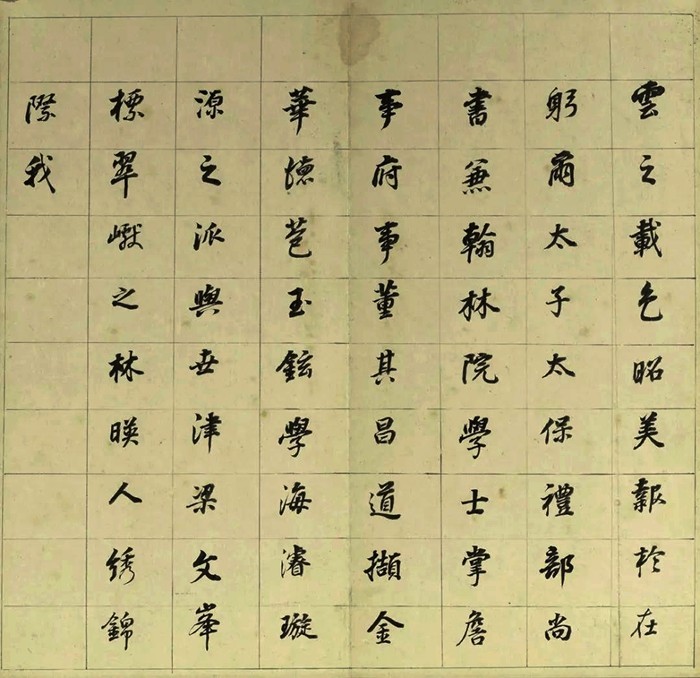 雲之載色昭美報於在
躬爾太子太保禮部尚
書兼翰林院學士掌詹
事府事董其昌道擷金
華德苞玉鉉學海濬璇
源之派與世津梁文峯
標翠巘之林暎人綉錦
際我